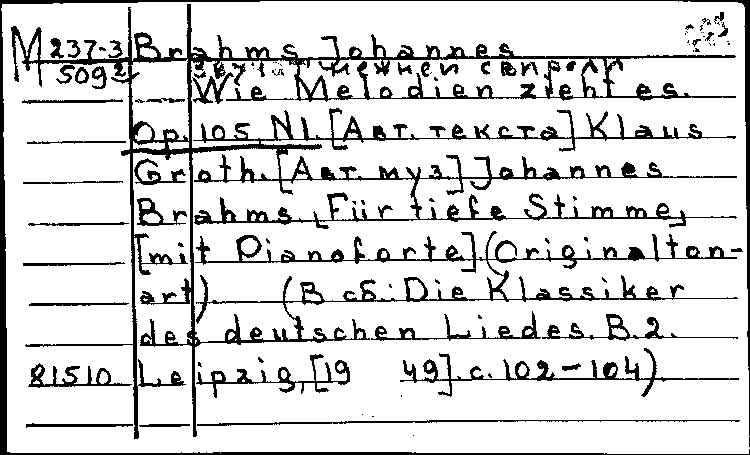 M 237-3 Brahms, Johannes
5092
Wie Melodien zieht es.
Op. 105, N1. [Авт. текста] Klaus
Groth. [Авт. муз.] Johannes
Brahms. Für tiefe Stimme,
[mit Pianoforte]. (Originalton-
art). (В сб.: Die Klassiker
des deutschen Liedes. B. 2.
81510 Leipzig, [19 49]. с. 102-104).